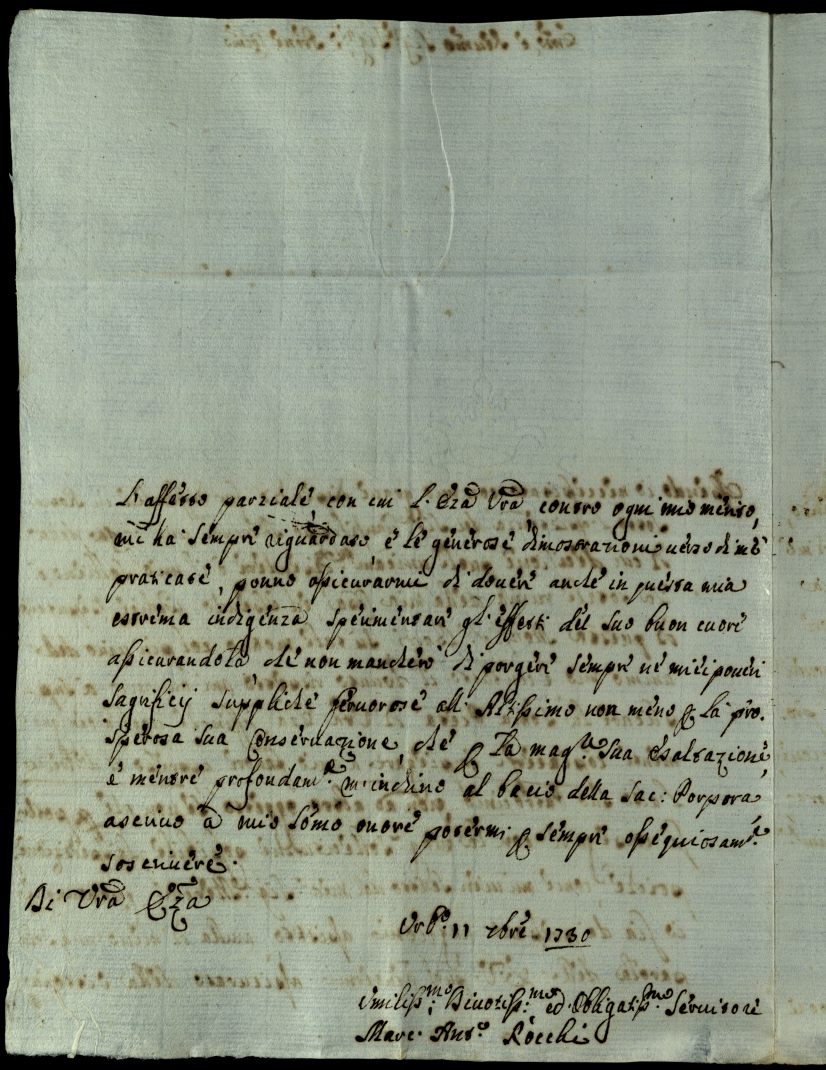 L'affetto parziale, con cui l'Eza Vra contro ogni mio merito,
mi ha sempre riguardato, e le generose dimostrazioni verso di me
praticate, ponno assicurarmi di dovere anche in questa mia
estrema indigenza sperimentare gl'effetti del suo buon cuore
assicurandola, che non mancherò di porgere sempre ne miei poveri
Sagrificij suppliche fervorose all'Altissimo non meno p la pro-
sperosa sua Conservazione, che p la magre sua esaltazione,
e mentre profondamte m'inchino al bacio della Sac: Porpora
ascrivo à mio sommo onore potermi p sempre ossequiosamte
soscrivere.
Di Vra Eza
Urbo 11 7bre 1730
Umilissmo: Divotissmo: ed Obligatissmo: Servitore
Marc' Anto Rocchi